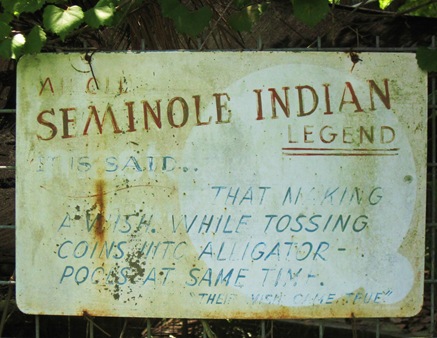 AN OLD
SEMINOLE INDIAN
LEGEND
IT IS SAID..
THAT MAKING
A WISH WHILE TOSSING
COINS INTO ALLIGATOR-
POOLS AT SAME TIME.
"THEIR WISH CAME TRUE"